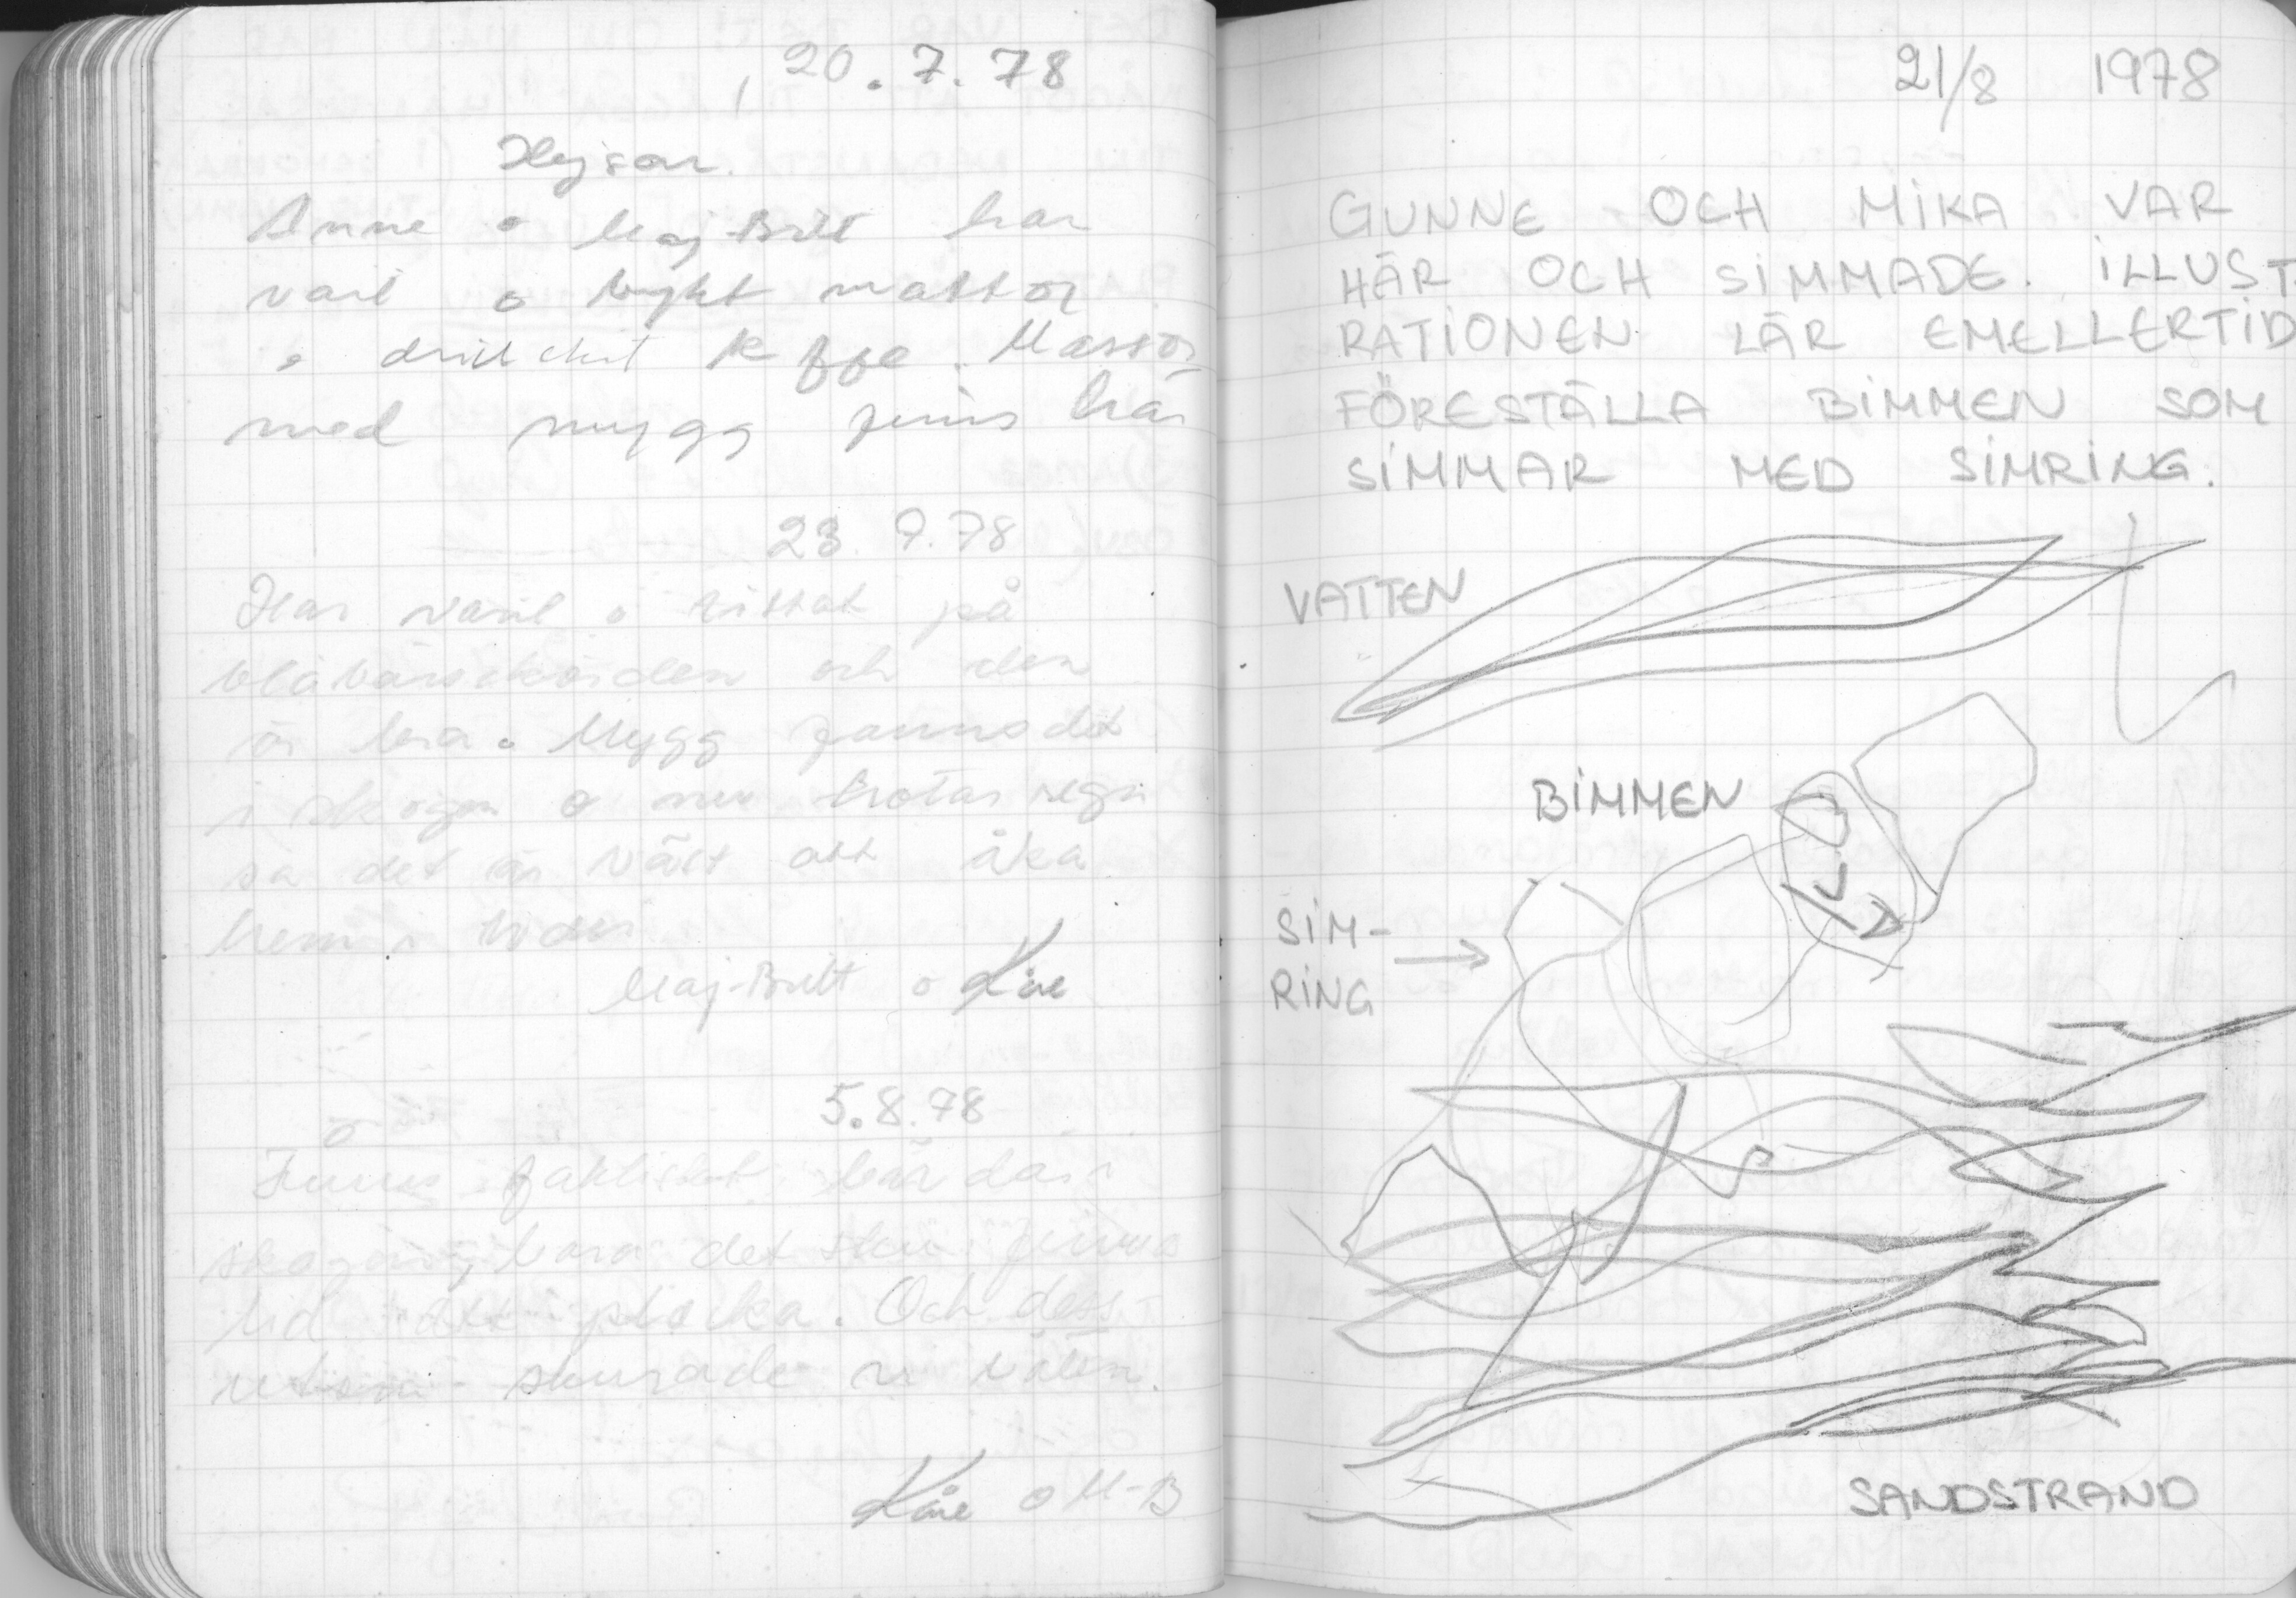 20.7.78
Hejsan.
Anne o Maj-Britt har
varit o bykt mattor
o druckit kaffe. Massor
med mygg finns här
23.7.78
Har varit o tittat på
blåbärsskörden och den
är bra. Mygg fanns det
i skogen o nu hotar regn
så det är bäst att åka
hem i tider
Maj-Britt o Kåre
5.8.78
Finns faktiskt bär
bara det sku finnas
tid att plocka. Och dess-
utom skurade vi
Kåre o M-B
21/8 1978
GUNNE OCH MIKA VAR
HÄR OCH SIMMADE. ILLUST-
RATIONEN LÄR EMELLERTID
FÖRESTÄLLA BIMMEN SOM
SIMMAR MED SIMRING.
VATTEN
BIMMEN
SIM-
RING
SANDSTRAND